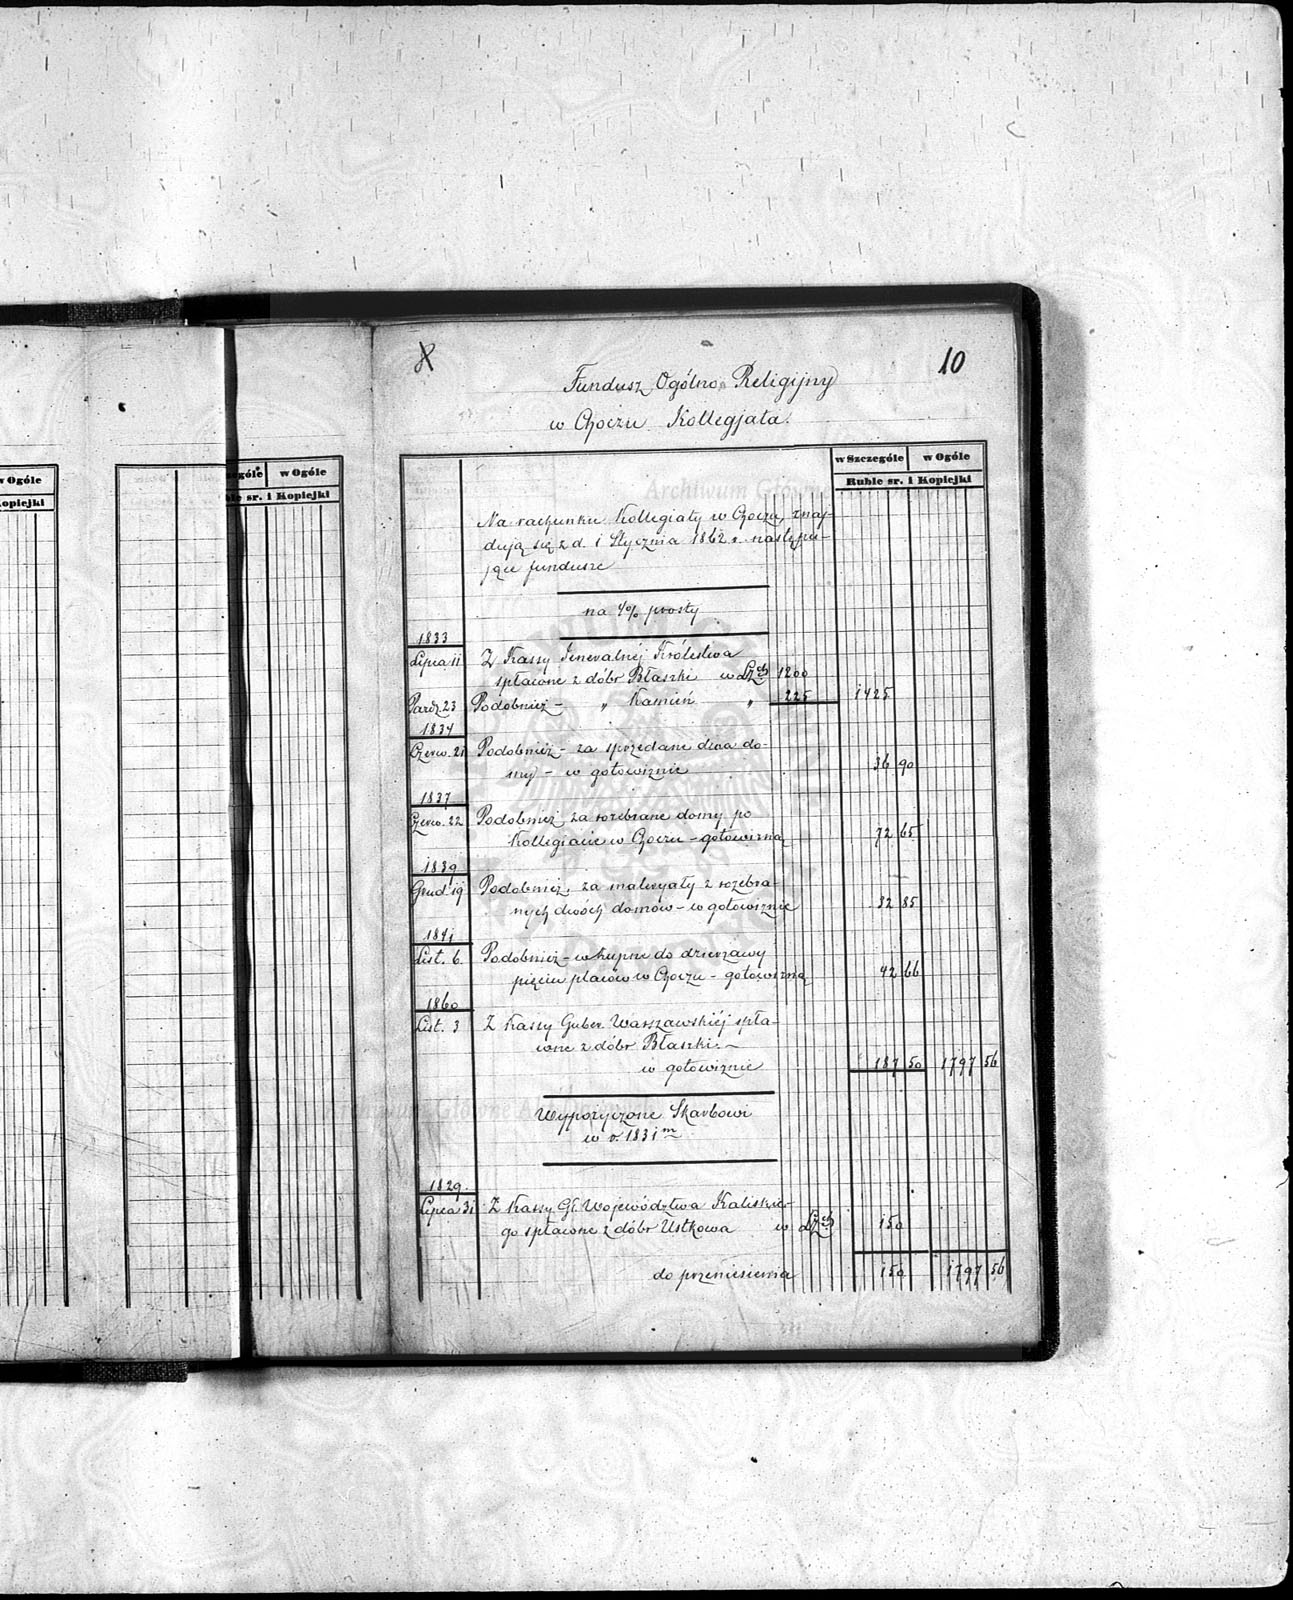 10
Fundusz Ogólno Religijny
w Choczu Kollegjata.
w Szczególe w Ogóle
Ruble sr. i Kopiejki
Na rachunku Kollegiaty w Choczu, znaj-
dują się z d. 1 Stycznia 1862 r. następu-
jące fundusze
na 4% prosty
1833
Lipca 11 Z Kassy Jeneralnéj Królestwa
spłacone z dóbr Błaszki w 1200
Paźdz. 23 Podobnież - „ Kamień „ 225 1425
1834
Czerw. 21 Podobnież - za sprzedane dwa do-
my - w gotowiznie 36 90
1837
Czerw. 22 Podobnież, za rozebrane domy po
Kollegiacie w Choczu - gotowizną 72 65
1839
Grud. 19 Podobnież, za materyały z rozebra-
nych dwóch domów - w gotowiznie 32 85
1841
List. 6. Podobnież - wkupne do dzierzawy
pięciu placów w Choczu - gotowizną 42 66
1860
List. 3 Z Kassy Guber. Warszawskiéj spła-
cone z dóbr Błaszki. -
w gotowiznie 187 50 1797 56
Wypożyczone Skarbowi
w r. 1831m
1829.
Lipca 31 Z Kassy Gł. Województwa Kaliskie-
go spłacone z dóbr Ustkowa w 150
do przeniesienia 150 1797 56
w Ogóle
Kopiejki
w Ogóle
sr. i Kopiejki